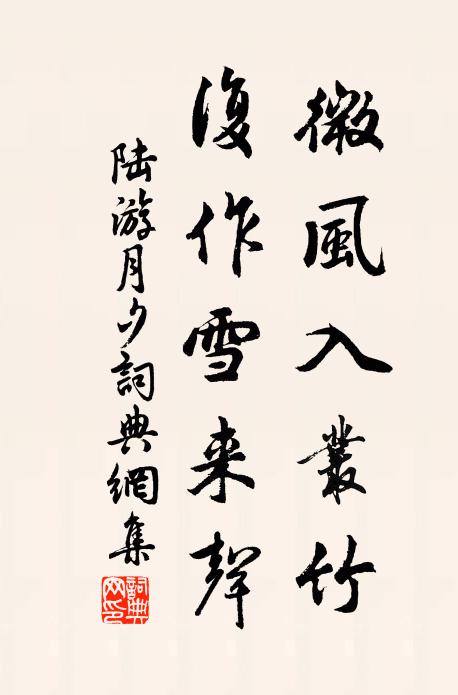 微風入叢竹
復作雪来聲
陸游月夕詞典網集
詞典网印